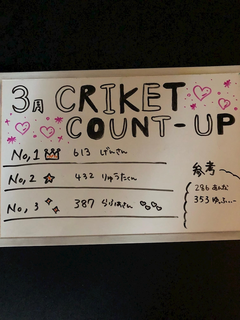 3月 CRIKET
COUNT-UP
No,1 613 げんさん
No,2 432 りゅうたくん
No,3 387
参考
286
353